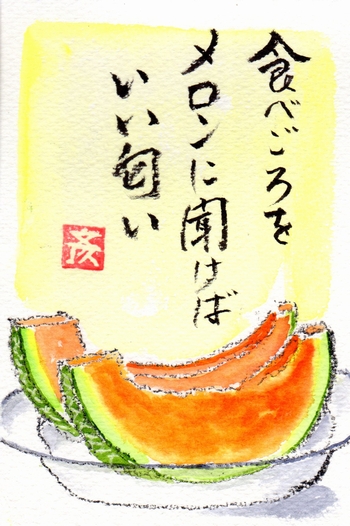 食べごろを
メロンに聞けば
いい匂い